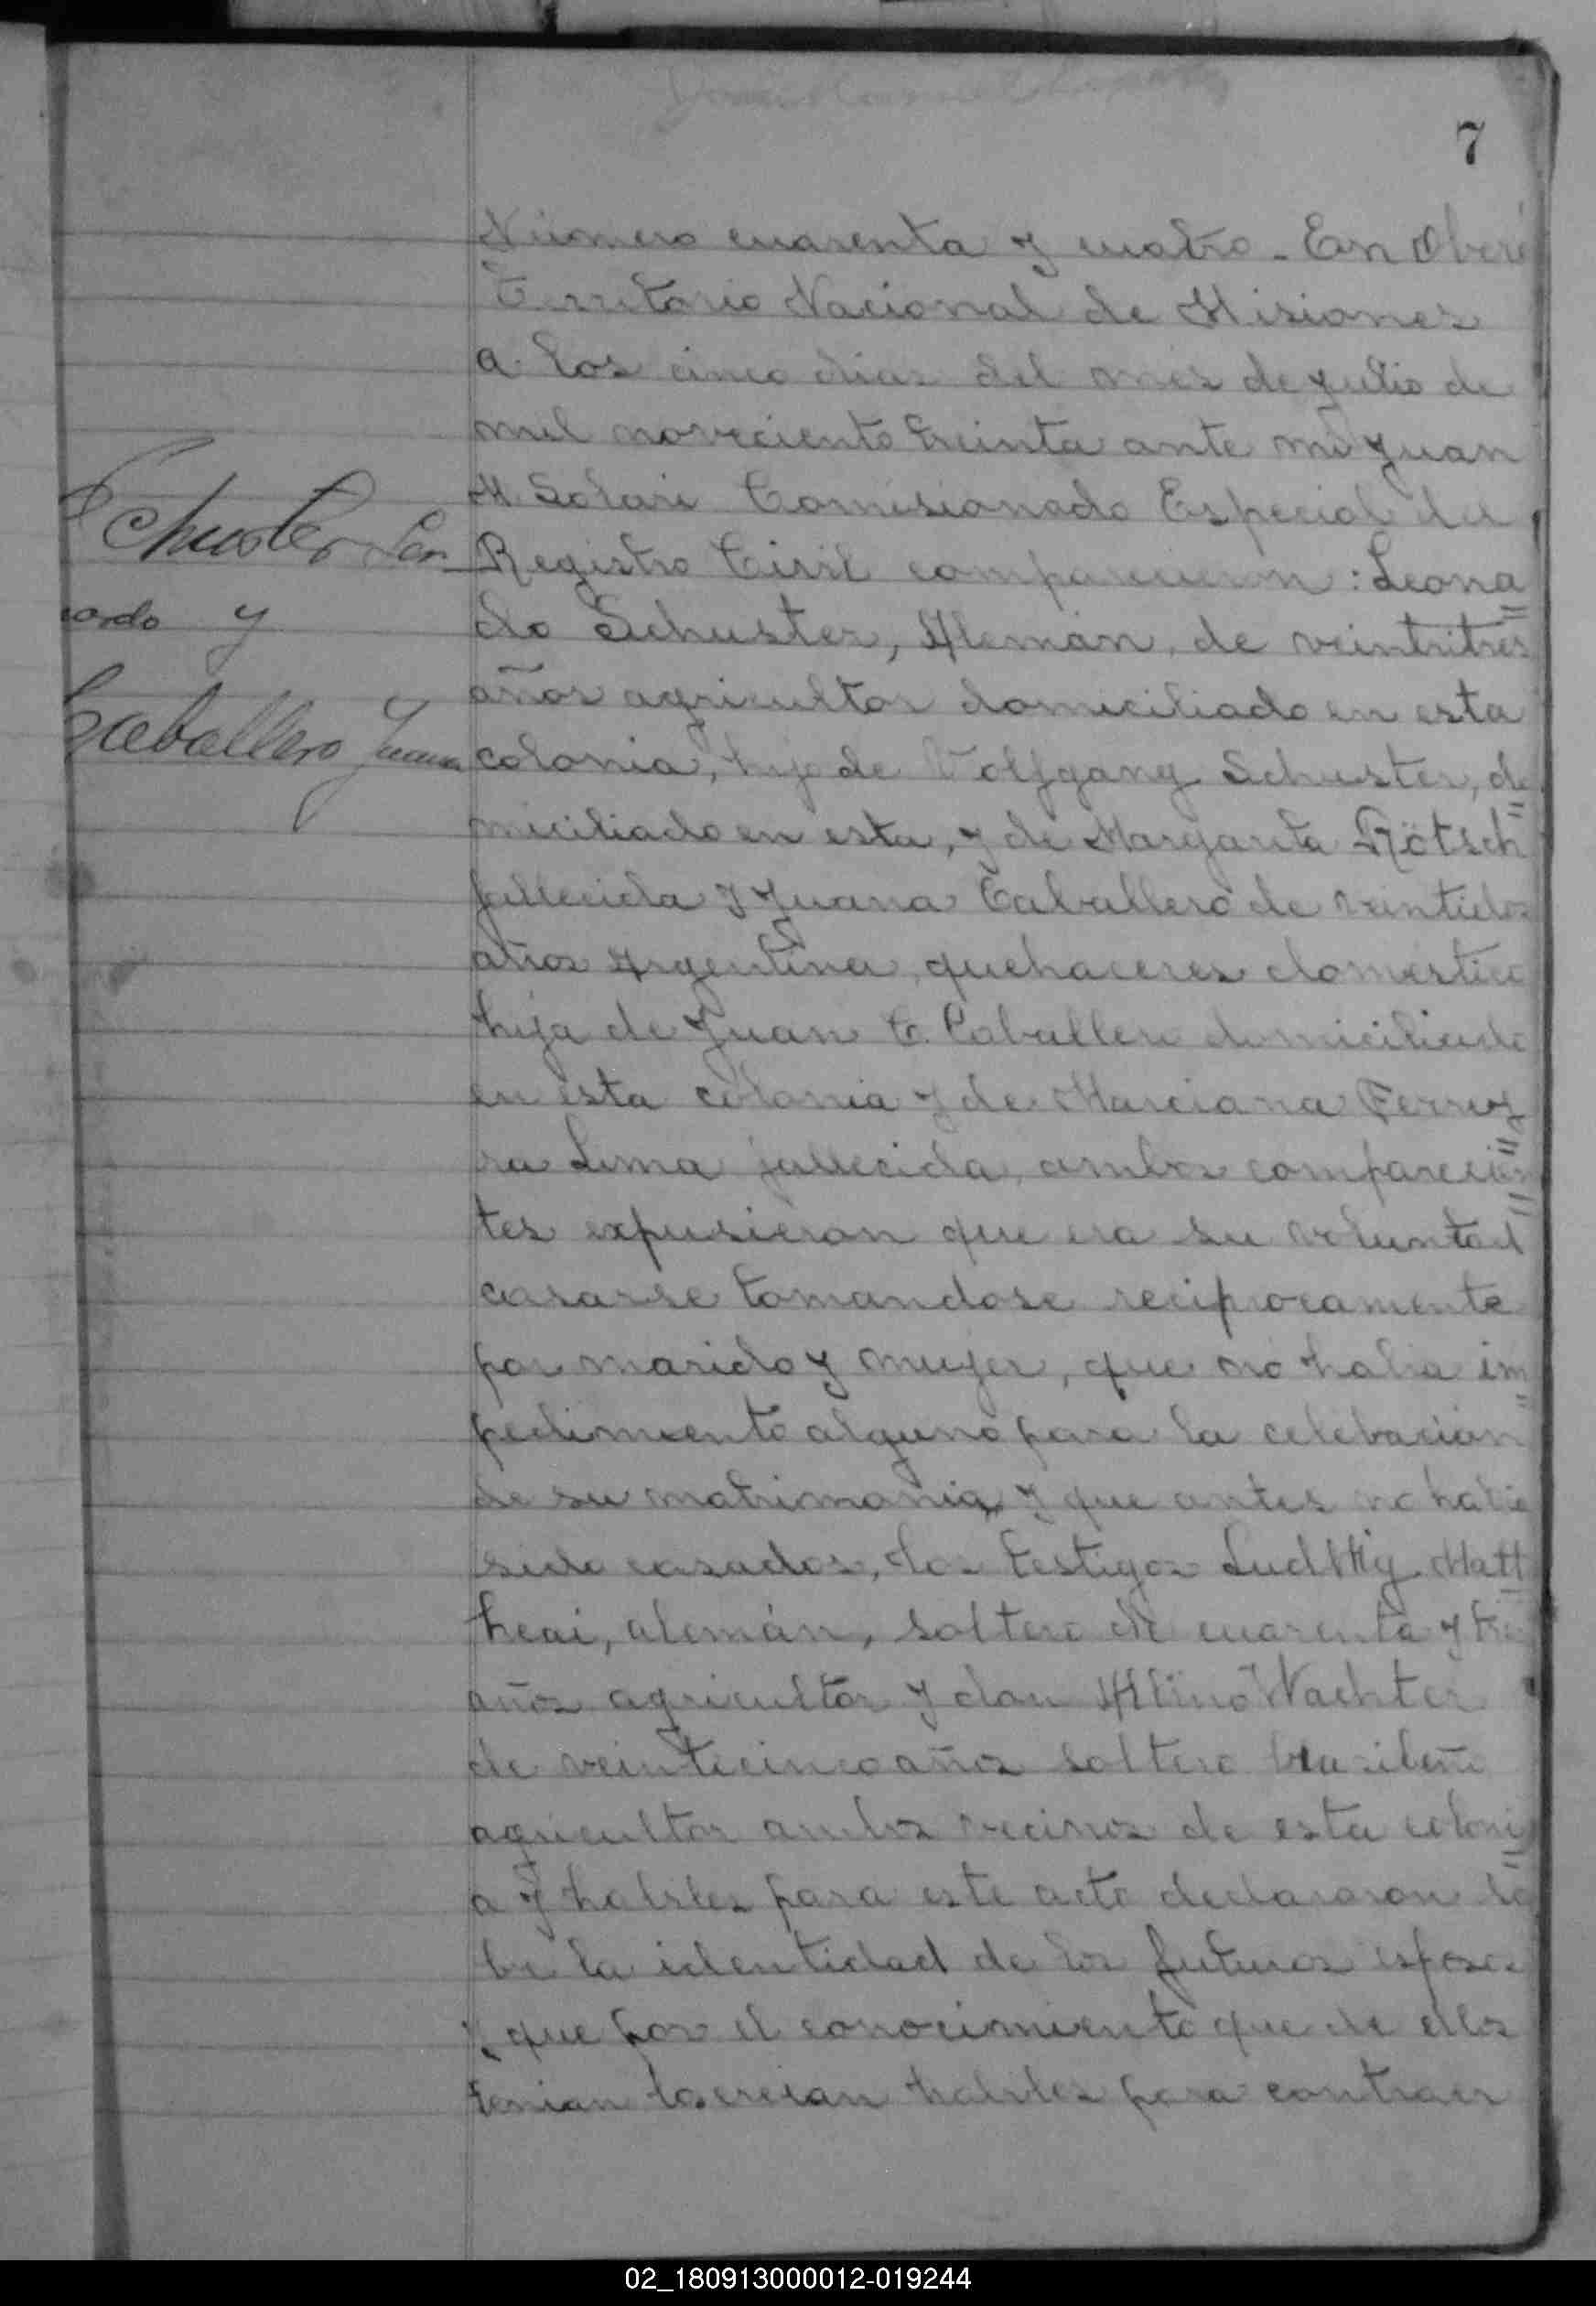 7
Número cuarenta y cuatro. En Oberá
Territorio Nacional de Misiones
a los cinco dias del mes de julio de
mil noveciento treinta ante mi Juan
M. Solari Comisionado Especial del
Schuster Leo
Registro Civil comparecieron: Leona
nardo y
do Schuster, Alemán, de veintritres
años agricultor domiciliado en esta
Caballero Juana
colonia, hijo de Wolfgang Schuster, do
miciliado en esta, y de Margarita Rötsch
fallecida y Juana Caballero de veintidos
años Argentina, quehaceres domestico
hija de Juan C. Caballero domiciliado
en esta colonia y de Marciana Ferrey
ra Lima fallecida, ambos comparecien
tes expusieron que era su voluntad
casarse tomandose reciprocamente
por marido y mujer, que no habia im
pedimento alguno para la celebacion
de su matrimonio y que antes no habia
sido casados, los testigos Ludwig Matt
heai, alemán, soltero de cuarenta y tres
años agricultor y don Albino Wachter
de veinticinco años soltero brasileño
agricultor ambos vecinos de esta coloni
a y habiles para este acto declararon so
bre la identidad de los futuros esposos
y que por el conocimiento que de ellos
tenian los creian habiles para contraer
02_180913000012-019244